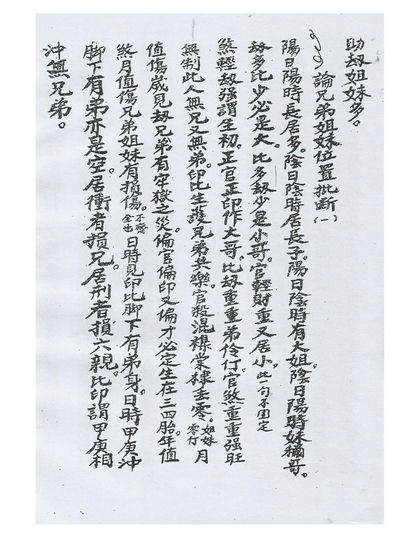 助劫姐妹多。
論兄弟姐妹位置批断(一)
陽日陽時長居多。陰日陰時居長子。陽日陰時有大姐。陰日陽時妹稱哥。
劫多比少必是大。比多劫少是小哥。官輕財重又居小。此一句不固定
煞輕劫強謂生初。正官正印作大哥。比劫重重弟伶仃。官煞重重強旺
無制此人無兄又無弟。印比生護兄弟共樂。官殺混襍棠棣丢零。姐妹零仃月
值傷歲見劫兄弟有牢獄之災。偏官偏印又偏才必定生在三四胎。年值
煞月值傷兄弟姐妹有損傷。不喪全也日時見印比脚下有弟身。日時甲庚沖
脚下有弟亦是空。居衝者損兄。居刑者損六親。比印謂甲庚相
沖無兄弟。